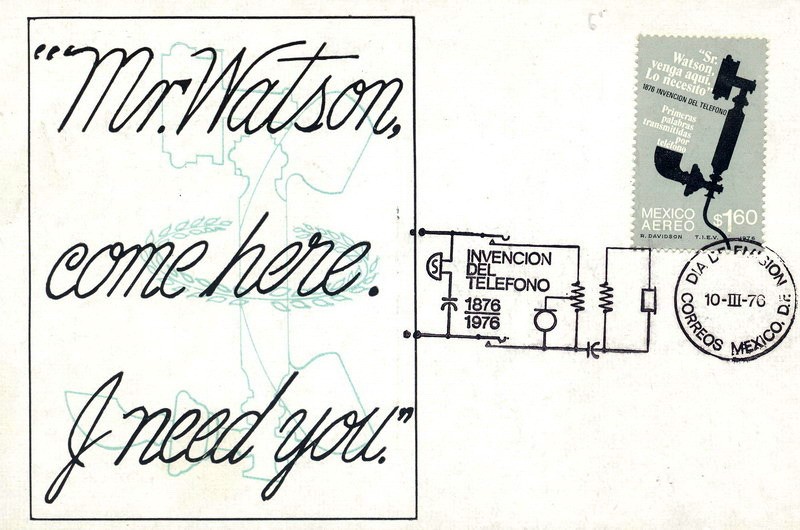 “Mr. Watson,
come here.
I need you.”
“Sr.
Watson,
venga aquí.
Lo necesito”
1876 INVENCION DEL TELEFONO
Primeras
palabras
transmitidas
por
teléfono
MEXICO
AEREO
$1.60
R. DAVIDSON T.I.E.V. 1976
INVENCION
DEL
TELEFONO
1876
1976
DIA DE EMISION
10-III-76
CORREOS MEXICO, D.F.